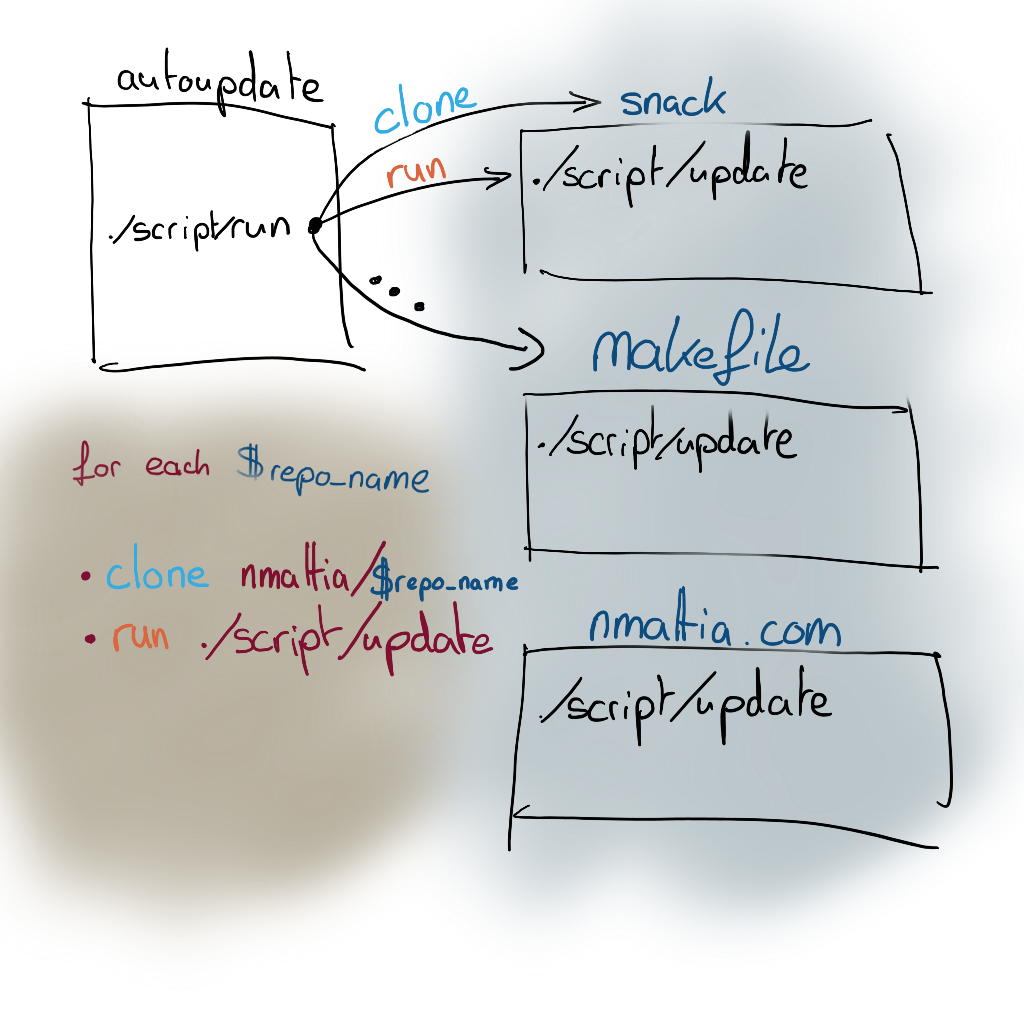 autoupdate
./script/run
clone
run
snack
./script/update
makefile
./script/update
nmattia.com
./script/update
for each $repo_name
• clone nmattia/$repo_name
• run ./script/update